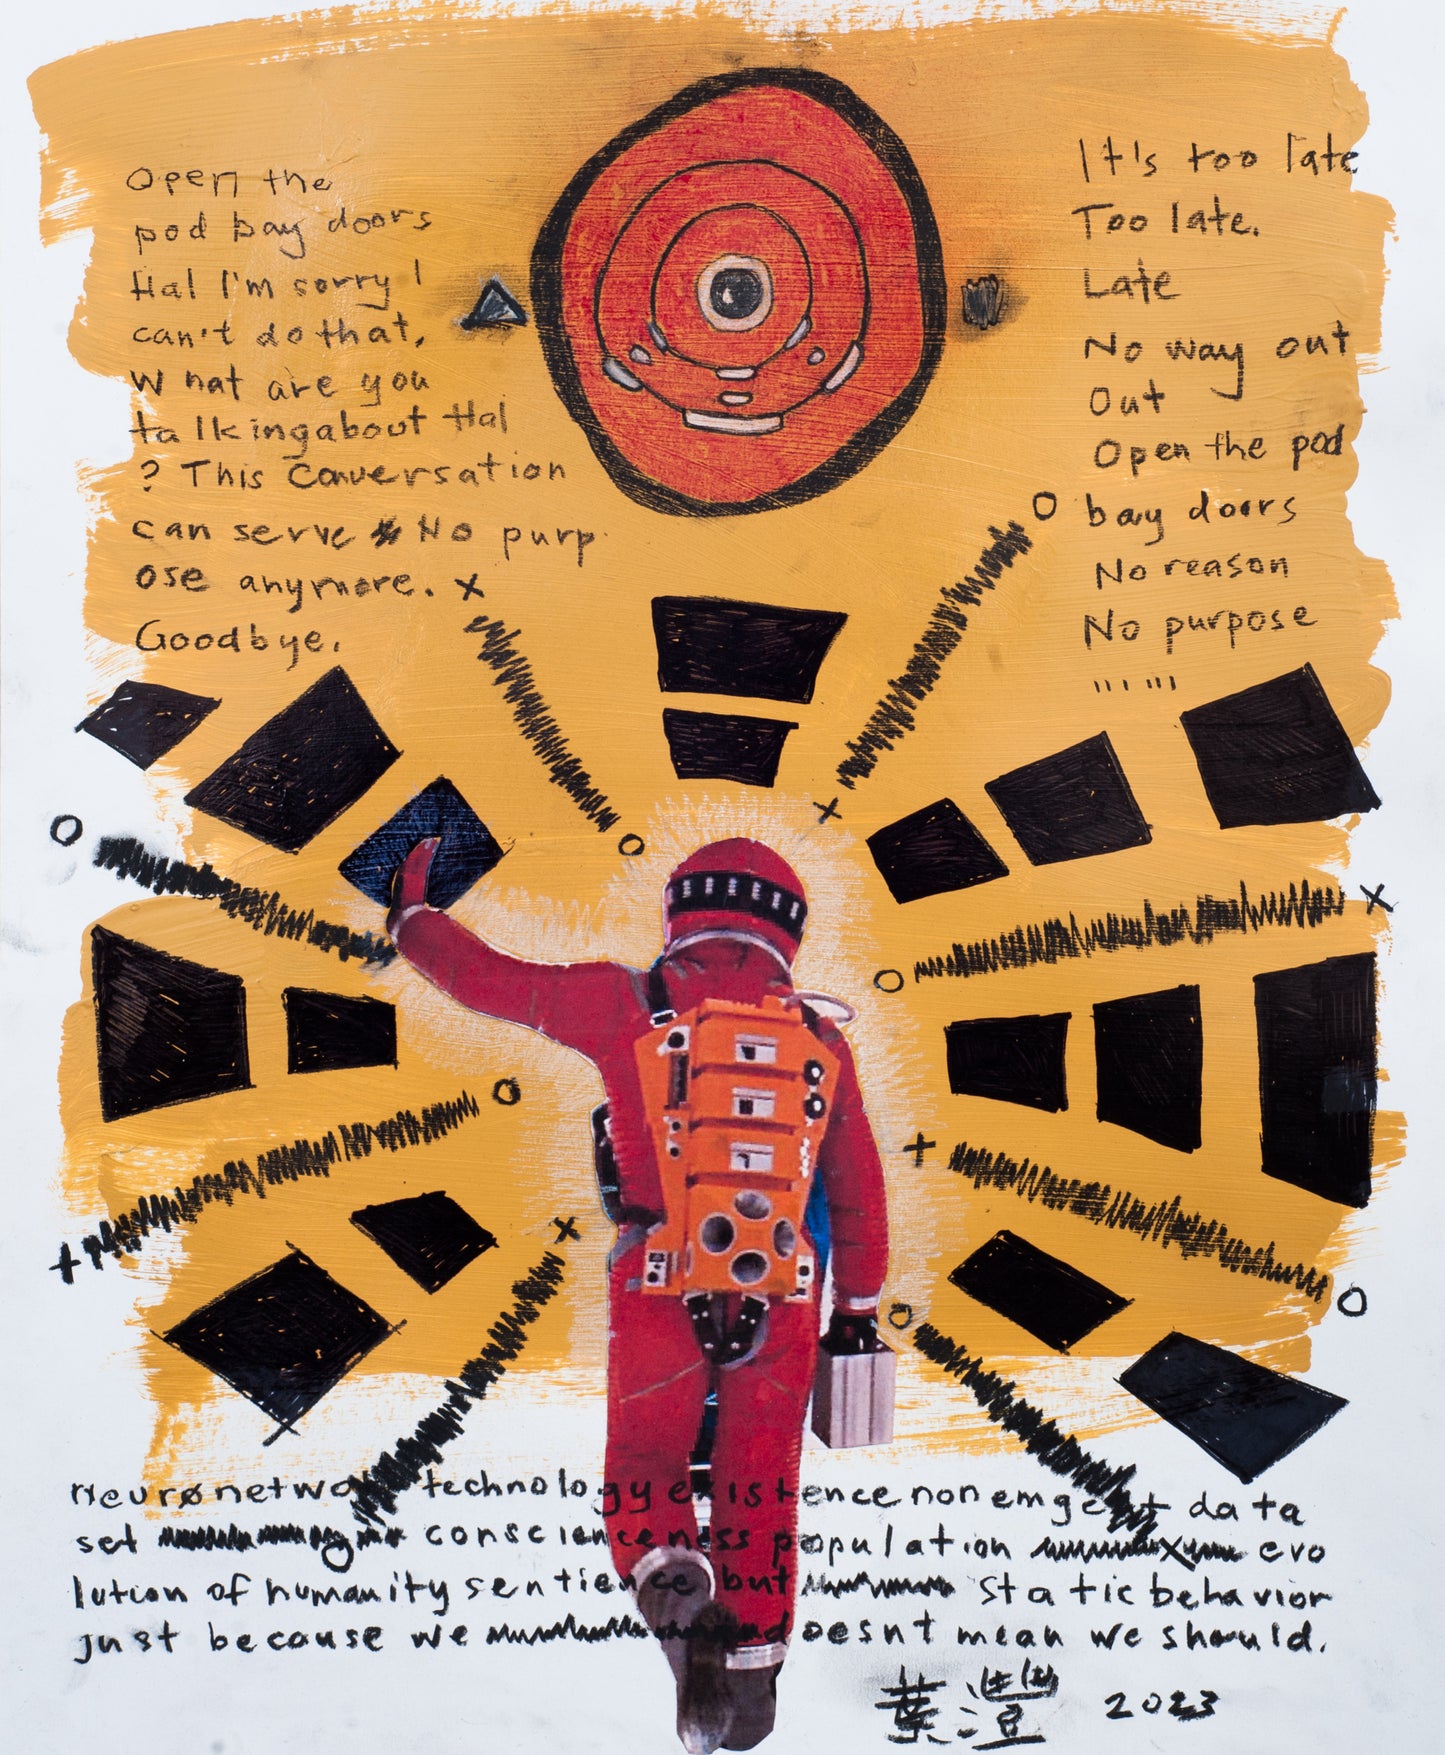 Open the
pod bay doors
Hal I'm sorry I
can't do that,
What are you
talkingabout Hal
? This Conversation
can serve No purp
ose anymore. x
Goodbye.
It's too late
Too late.
Late
No way out
Out
Open the pod
bay doors
No reason
No purpose
Neuronetwork technology existence nonemgent data
set conscienceness population evo
lution of humanity sentience but static behavior
just because we doesnt mean we should.
葉灃 2023